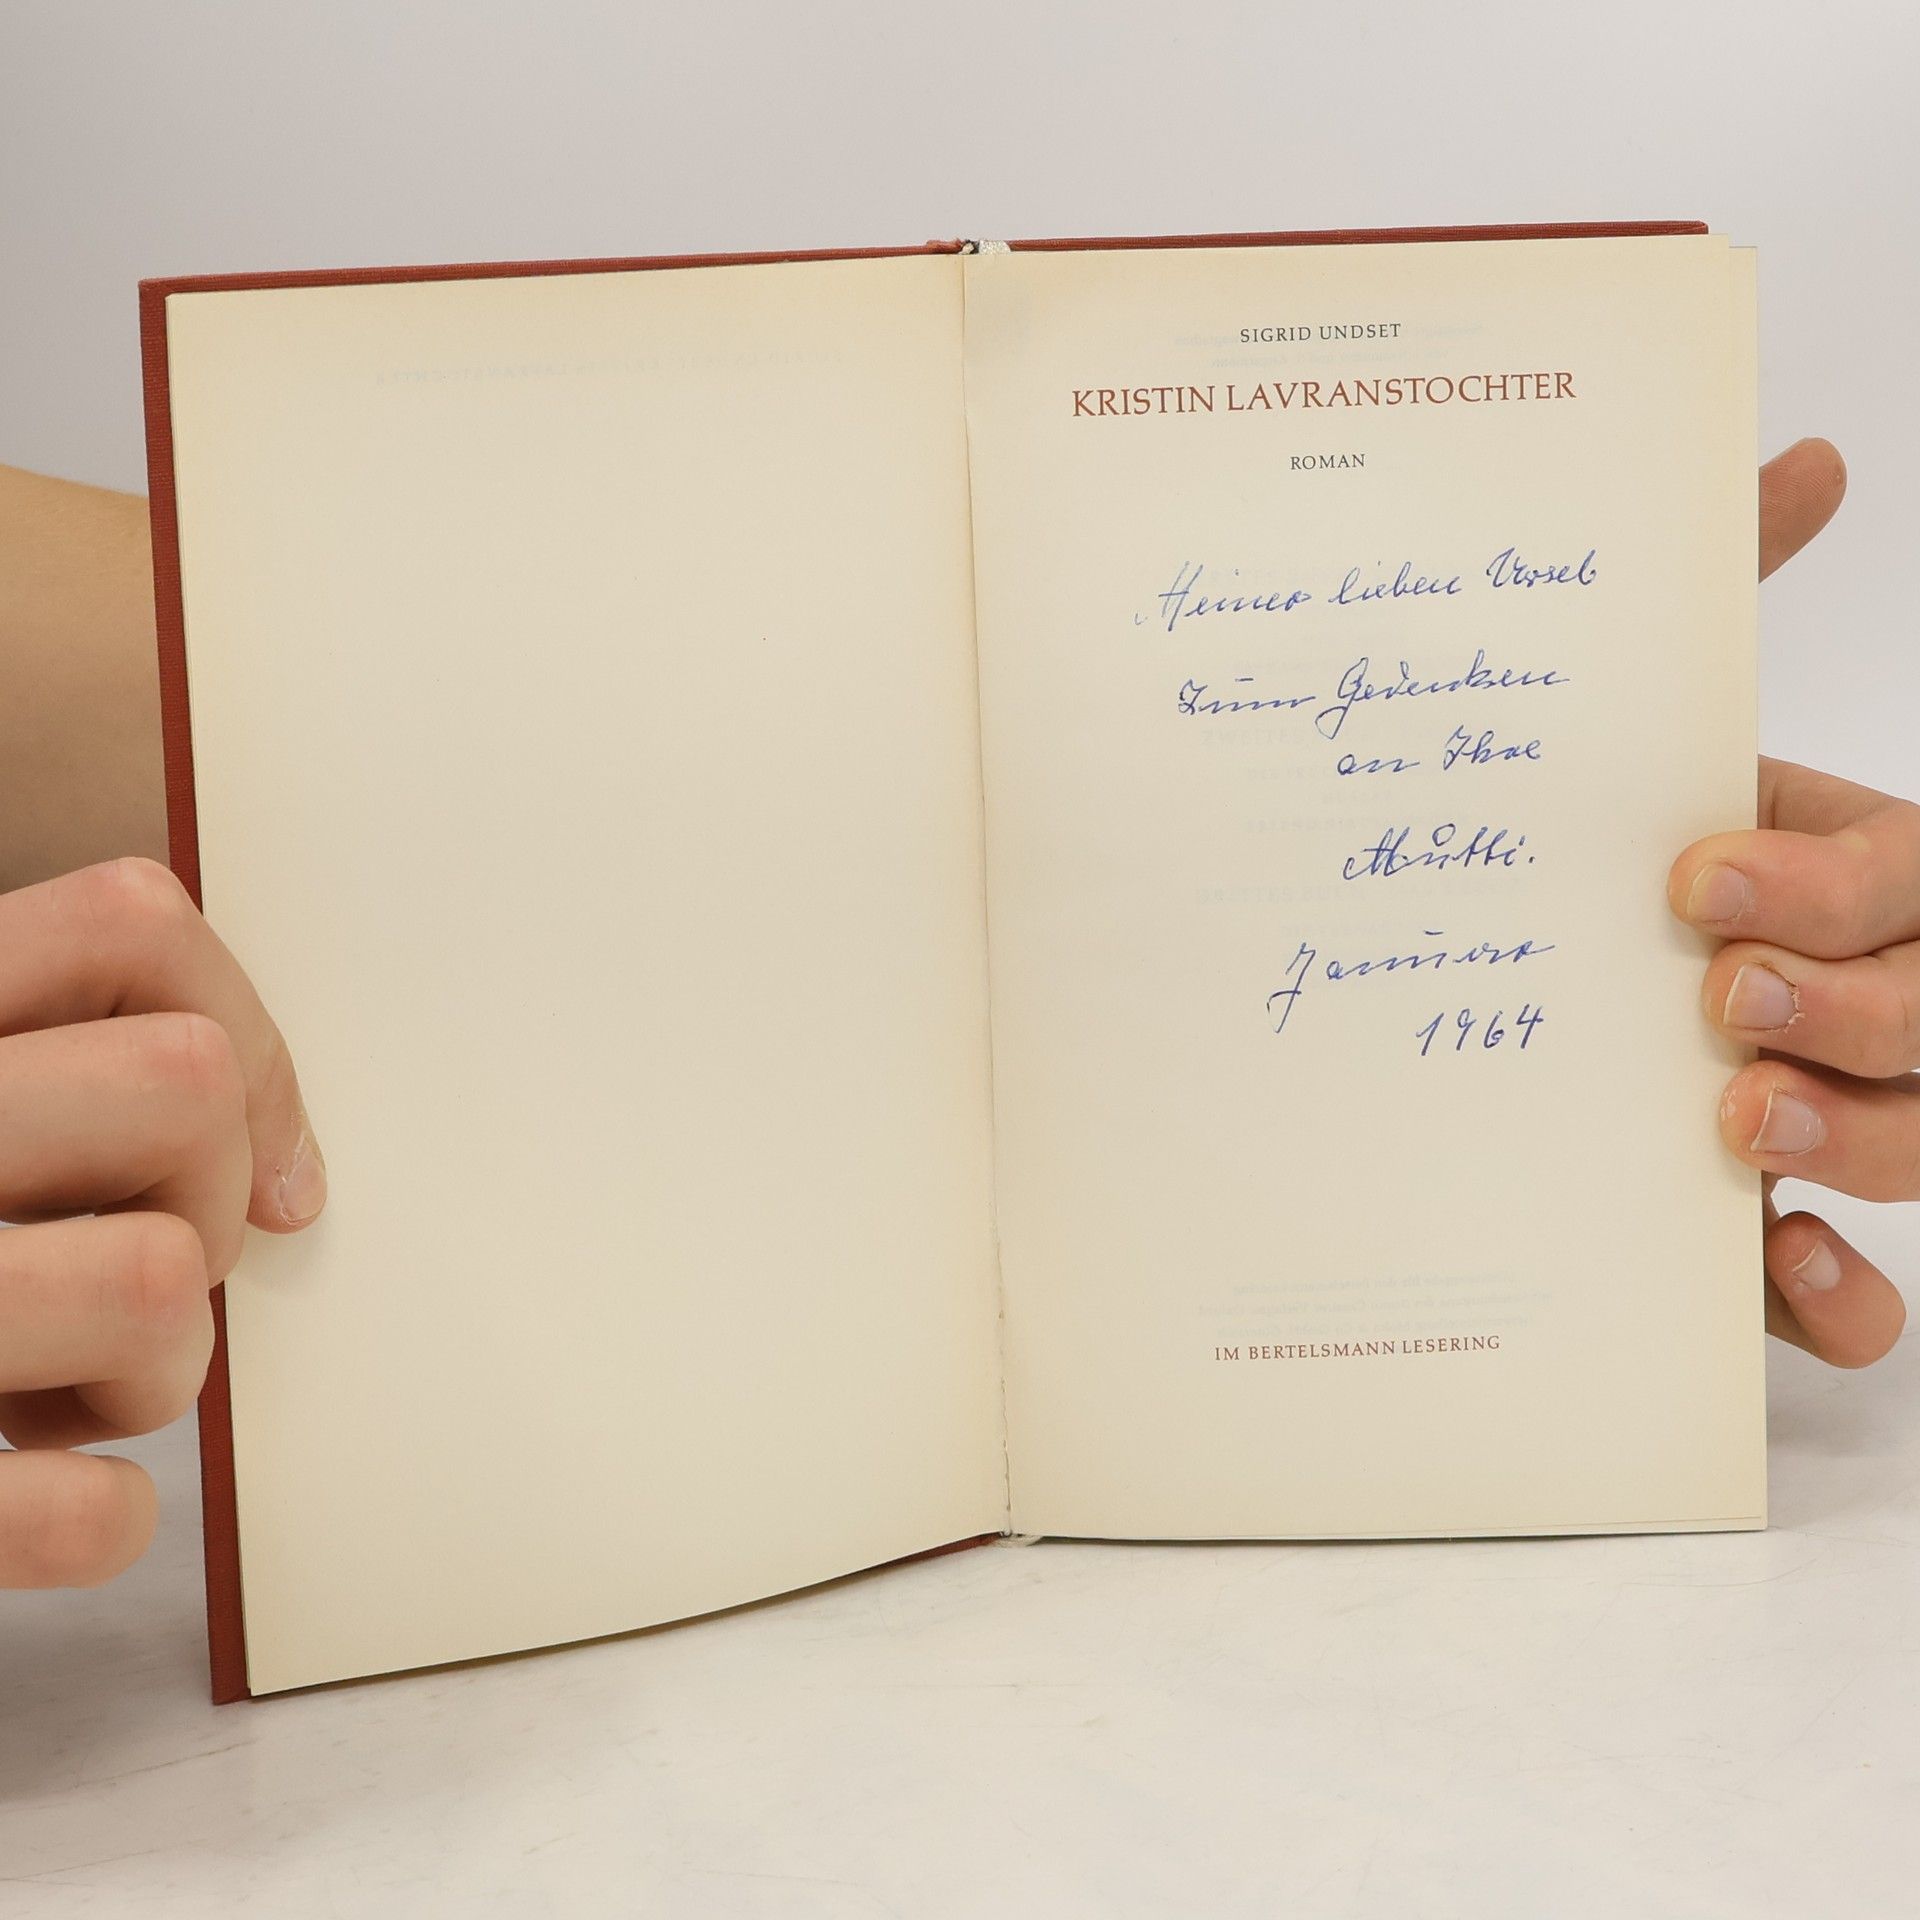 SIGRID UNDSET
KRISTIN LAVRANSTOCHTER
ROMAN
Meiner lieben Ursel
Zum Gedenken
an Ihre
Mutti.
Januar
1964
IM BERTELSMANN LESERING